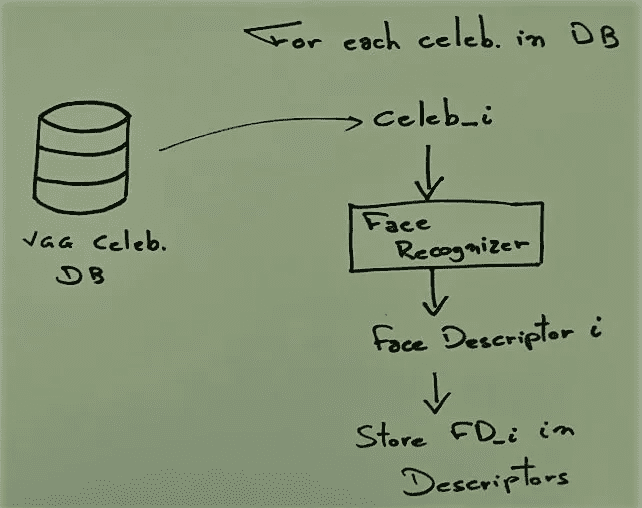 For each celeb. in DB
celeb_i
VGG celeb.
DB
Face
Recognizer
Face Descriptor i
Store FD_i in
Descriptors